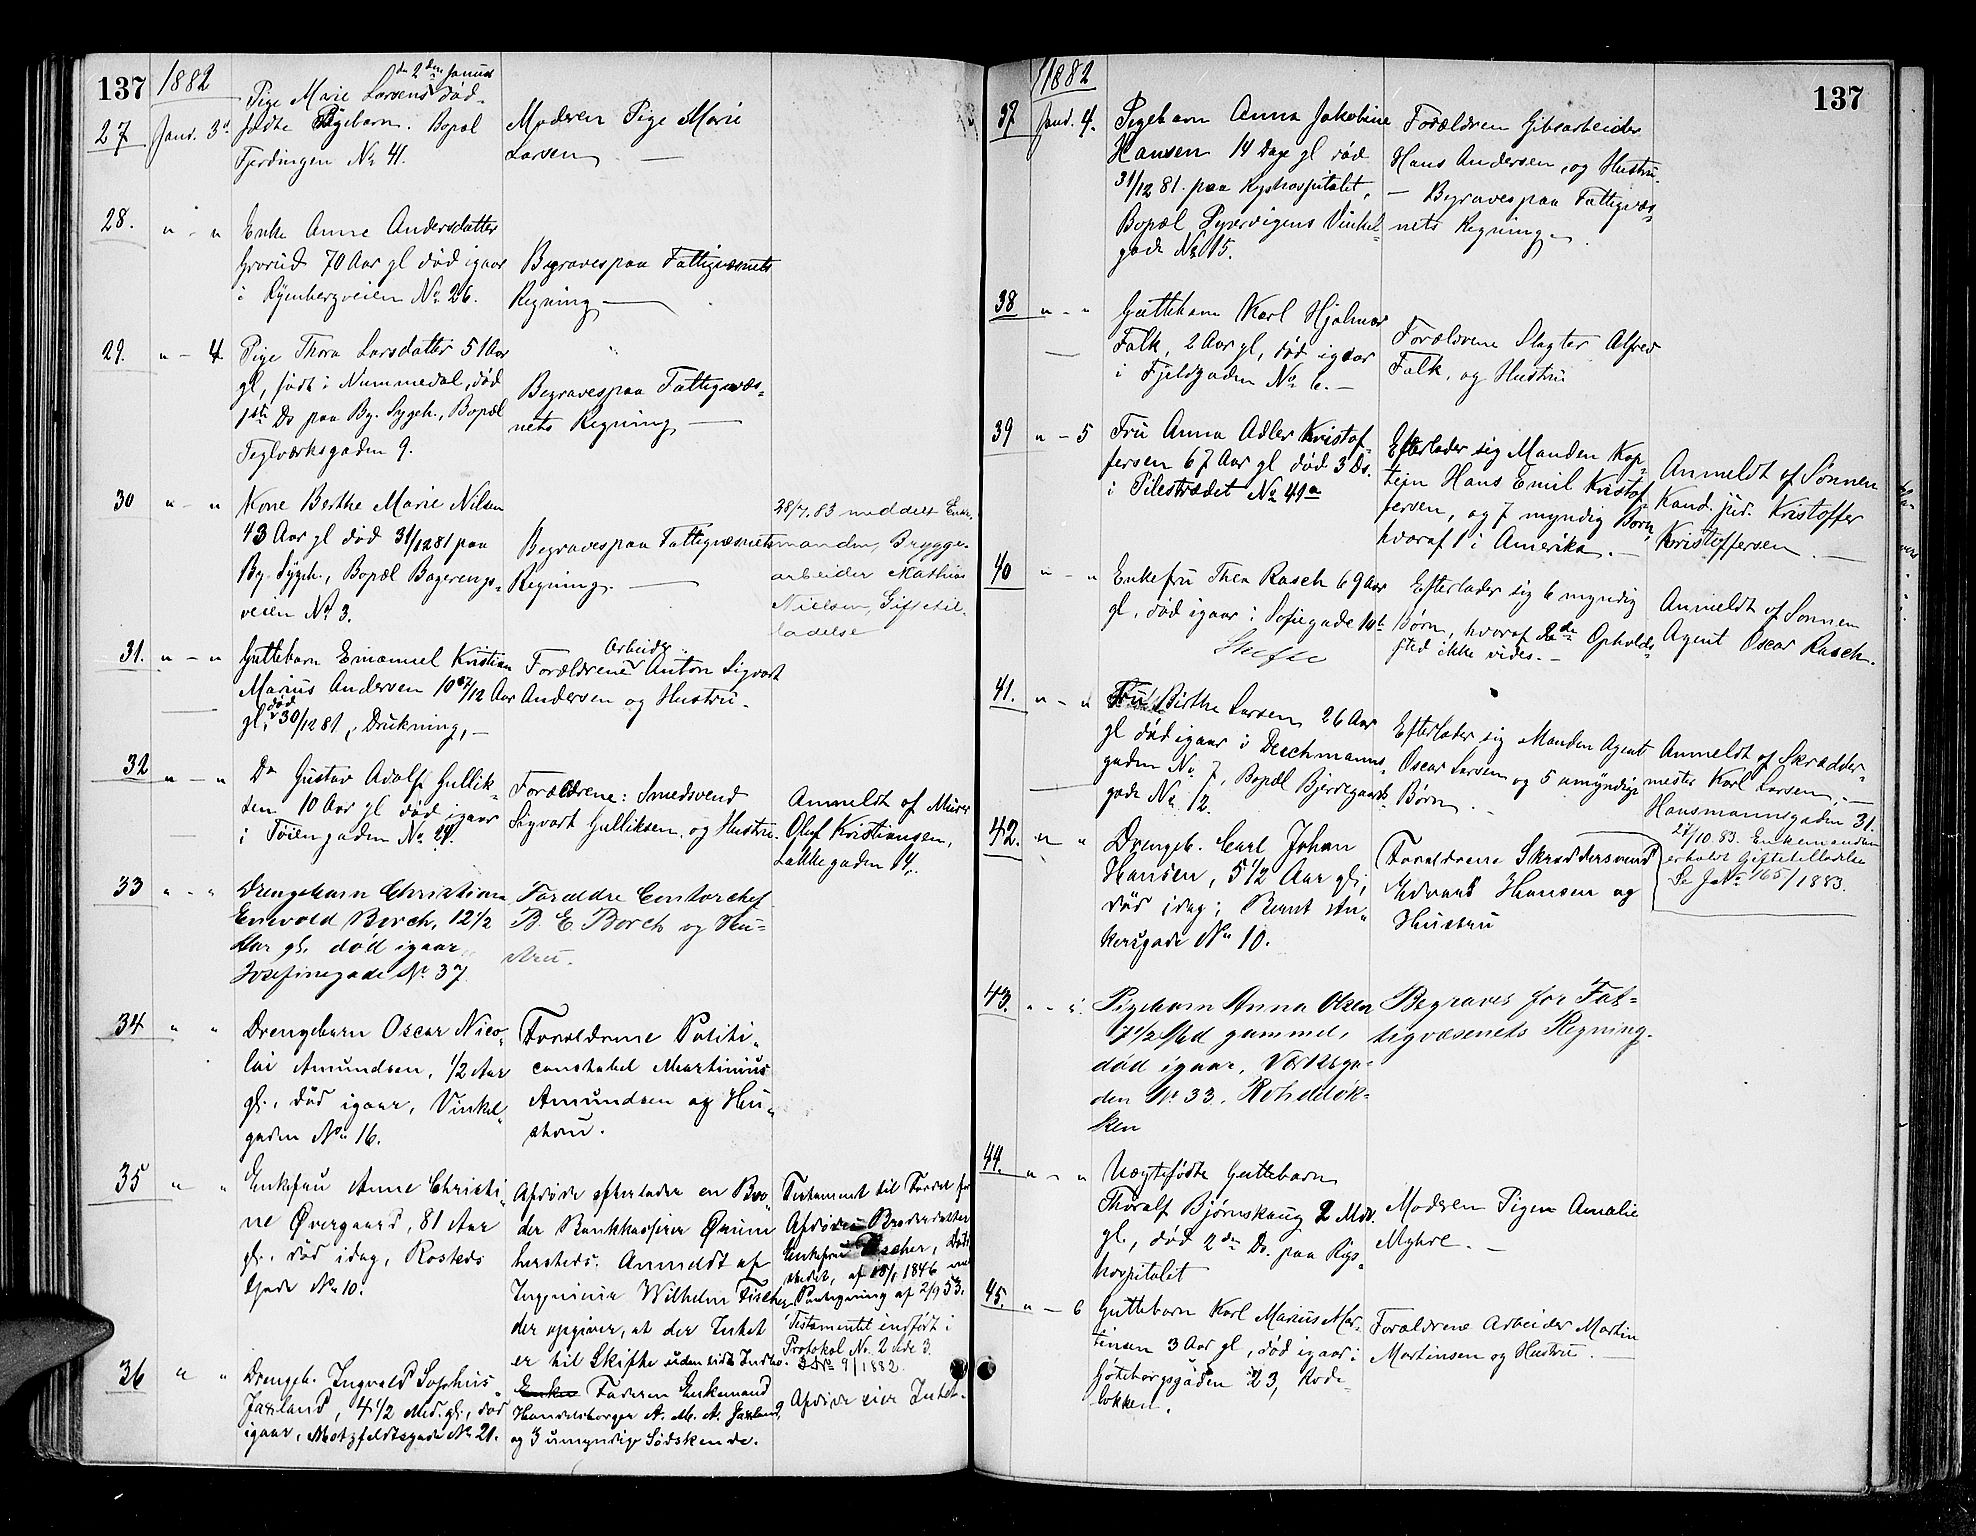 137
1882
27 Janr. 3d.
Pige Marie Larsens den 2den Januar død-
fødte Pigebarn. Bopæl
Fjerdingen No 41.
Moderen Pige Marie
Larsen
28. " - "
Enke Anne Andersdatter
Grorud 70 Aar gl død igaar
i Ryenbergveien No 26.
Begraves paa Fattigvæsnets
Regning
29. " - 4.
Pige Thora Larsdatter 51 Aar
gl, født i Nummedal, død
1ste Ds paa By. Sygeh., Bopæl
Teglværksgaden 9.
Begraves paa Fattigvæs-
nets Regning
30 " - "
Kone Berthe Marie Nilsen
43 Aar gl død 31/12 81 paa
By. Sygeh., Bopæl
veien No 3.
Begraves paa Fattigvæsnets
Regning
28/7.83 meddelt Enke-
manden, Brygge-
arbeider Mathias
Nielsen, Giftetil-
ladelse
31. " - "
Guttebarn Emanuel Kristian
Marius Andersen 10 7/12 Aar
gl, død 30/12 81, Drukning, -
Forældrene Arbeider Anton Sigvart
Andersen og Hustru.
32 " - "
Do Gustav Adolf Gullik-
sen 10 Aar gl død igaar
i Tøiengaden No 29.
Forældrene: Smedsvend
Sigvart Gulliksen, og Hustru.
Anmeldt af Murer
Oluf Kristiansen,
Lakkegaden 14.
33 " - "
Drengebarn Christian
Enevold Borch, 12 1/2
Aar gl. død igaar
Josefinegade No 37
Forældre Contorchef
B. E. Borch og Hu-
stru.
34 " "
Drengebarn Oscar Nico-
lai Amundsen, 1/2 Aar
gl., død igaar, Vinkel-
gaden No 16.
Forældrene Politi-
constabel Martinius
Amundsen og Hu-
stru.
35 " "
Enkefru Anne Christi-
ne Øvergaard, 81 Aar
gl., død idag, Rosteds
Gade No 10.
Afdøde efterlader en Bro-
der Bankkasserer
Anmeldt af
Ingeniør Wilhelm Fischer
der opgiver, at der Intet
er til Skifte
Testament til Fordel for
Afdødes Broderdatter
Enkefru Fischer,
af 18/1 1846 med
Paategning af 2/9 53.
Testamentet indført i
Protokol No. 2 side 3.
J.No 9/1882.
36 " "
Drengeb. Ingvald Sophus
Jaxland, 4 1/2 Md. gl., død
igaar, Motzfeldtsgade No 21.
Enke Faderen Enkemand
Handelsborger A. M. A. Jaxland,
og 3 umyndige Sødskende.
Afdøde eier Intet.
137
1882
37 Janr. 4.
Pigebarn Anna Jakobine
Hansen 14 Dage gl død
31/12 81. paa Rigshospitalet,
Bopæl Pipervigens Vinkel-
gade No 15.
Forældren Gibsarbeider
Hans Andersen, og Hustru.
- Begraves paa Fattigvæs-
nets Regning
38 " - "
Guttebarn Karl Hjalmar
Falk, 2 Aar gl, død igaar
i Fjeldgaden No 6. -
Forældrene Slagter Alfred
Falk, og Hustru
39 " - 5
Fru Anna Adler Kristof-
fersen 67 Aar gl død 3 Ds.
i Pilestrædet No 41a
Efterlader sig Manden Kap-
tein Hans Emil Kristof-
fersen, og 7 myndig Børn,
hvoraf 1 i Amerika. -
Anmeldt af Sønnen
Kand. jur. Kristoffer
Kristoffersen. -
40 " - "
Enkefru Thea Rasch 69 Aar
gl, død igaar i Sofiegade 10b
Skifte
Efterlader sig 6 myndig
Børn, hvoraf 2de Opholds-
sted ikke vides. -
Anmeldt af Sønnen
Agent Oscar Rasch.
41. " - "
Fru Birthe Larsen 26 Aar
gl død igaar i Deichmanns-
gaden No 7, Bopæl Bjerregaards-
gade No 12.
Efterlader sig Manden Agent
Oscar Larsen og 5 umyndige
Børn.
Anmeldt af Skrædder-
mester Karl Larsen, -
Hausmannsgaden 31.
27/10.83. Enkemanden
erholdt Giftetilladelse
Se J.No 165/1883.
42. " "
Drengeb. Carl Johan
Hansen, 5 1/2 Aar gl.,
død idag; Bernt An-
kersgade No 10.
Forældrene Skræddersvend
Edvard Hansen og
Hustru
43. " - "
Pigebarn Anna Olsen
7 1/2 Md gammel,
død igaar, Værksga-
den No 33, Rodeløk-
ken
Begraves for Fat-
tigvæsenets Regning.
44. " - "
Uægtefødte Guttebarn
Thoralf Bjørnskaug 2 Mdr.
gl, død 2den Ds. paa Rigs-
hospitalet
Moderen Pigen Amalie
Myhre. -
45. " - 6
Guttebarn Karl Marius Mar-
tinsen 3 Aar gl, død igaar i
Gøteborgsgaden 23, Rode-
løkken.
Forældrene Arbeider Martin
Martinsen og Hustru. -